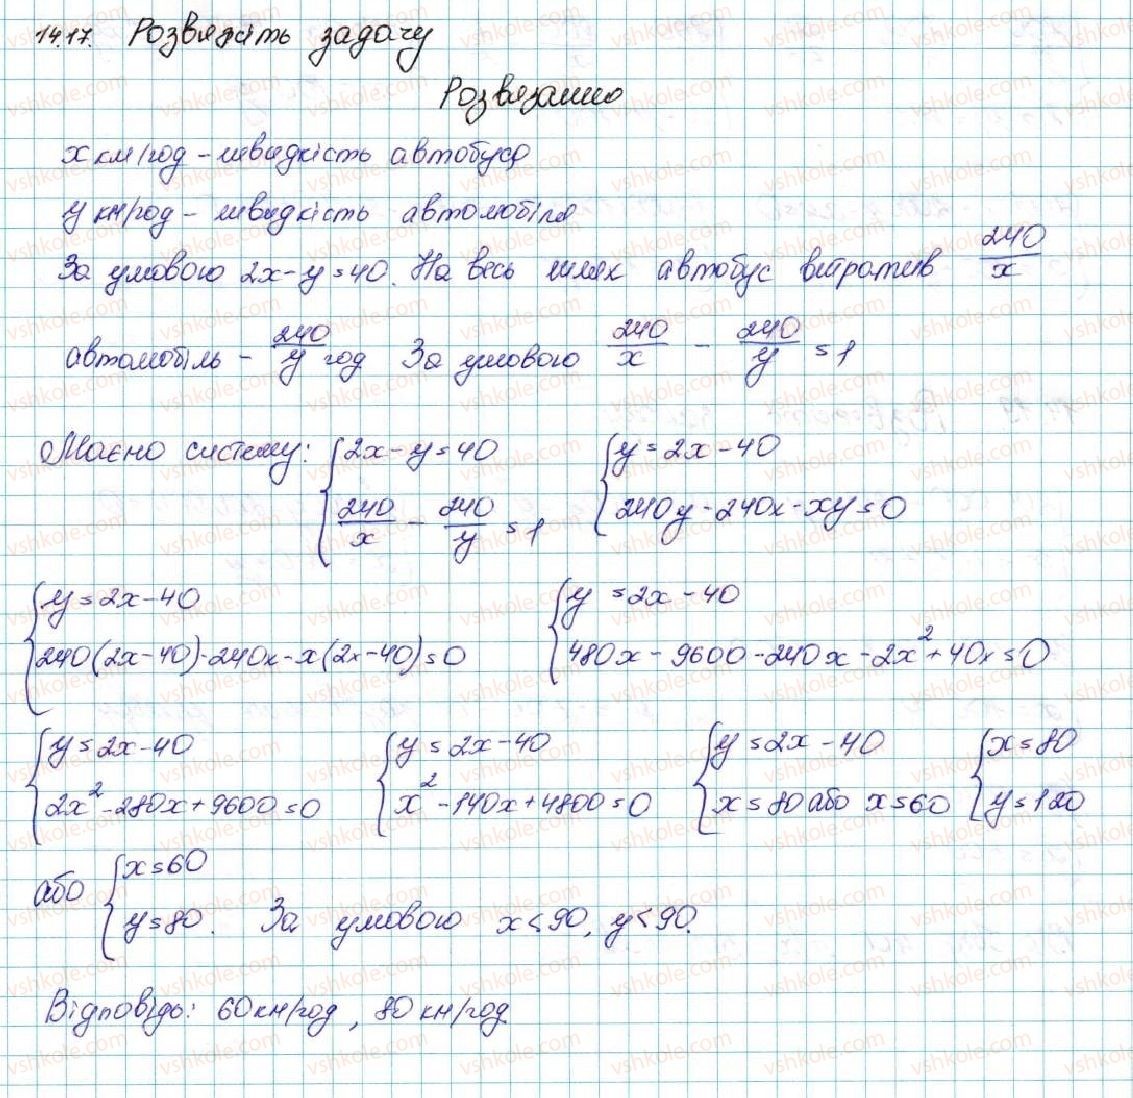 14.17. Розвяжіть задачу
Розвязання
x км/год - швидкість автобуса
y км/год - швидкість автомобіля
За умовою 2x-y=40. На весь шлях автобус витратив 240/x
автомобіль - 240/y год За умовою 240/x - 240/y = 1
Маємо систему: { 2x-y=40 { y=2x-40
240/x - 240/y = 1 240y-240x-xy=0
{ y=2x-40 { y=2x-40
240(2x-40)-240x-x(2x-40)=0 480x-9600-240x-2x²+40x=0
{ y=2x-40 { y=2x-40 { y=2x-40 { x=80
2x²-280x+9600=0 x²-140x+4800=0 x=80 або x=60 y=120
або { x=60
y=80. За умовою x<90, y<90.
Відповідь: 60км/год, 80км/год
vshkole.com